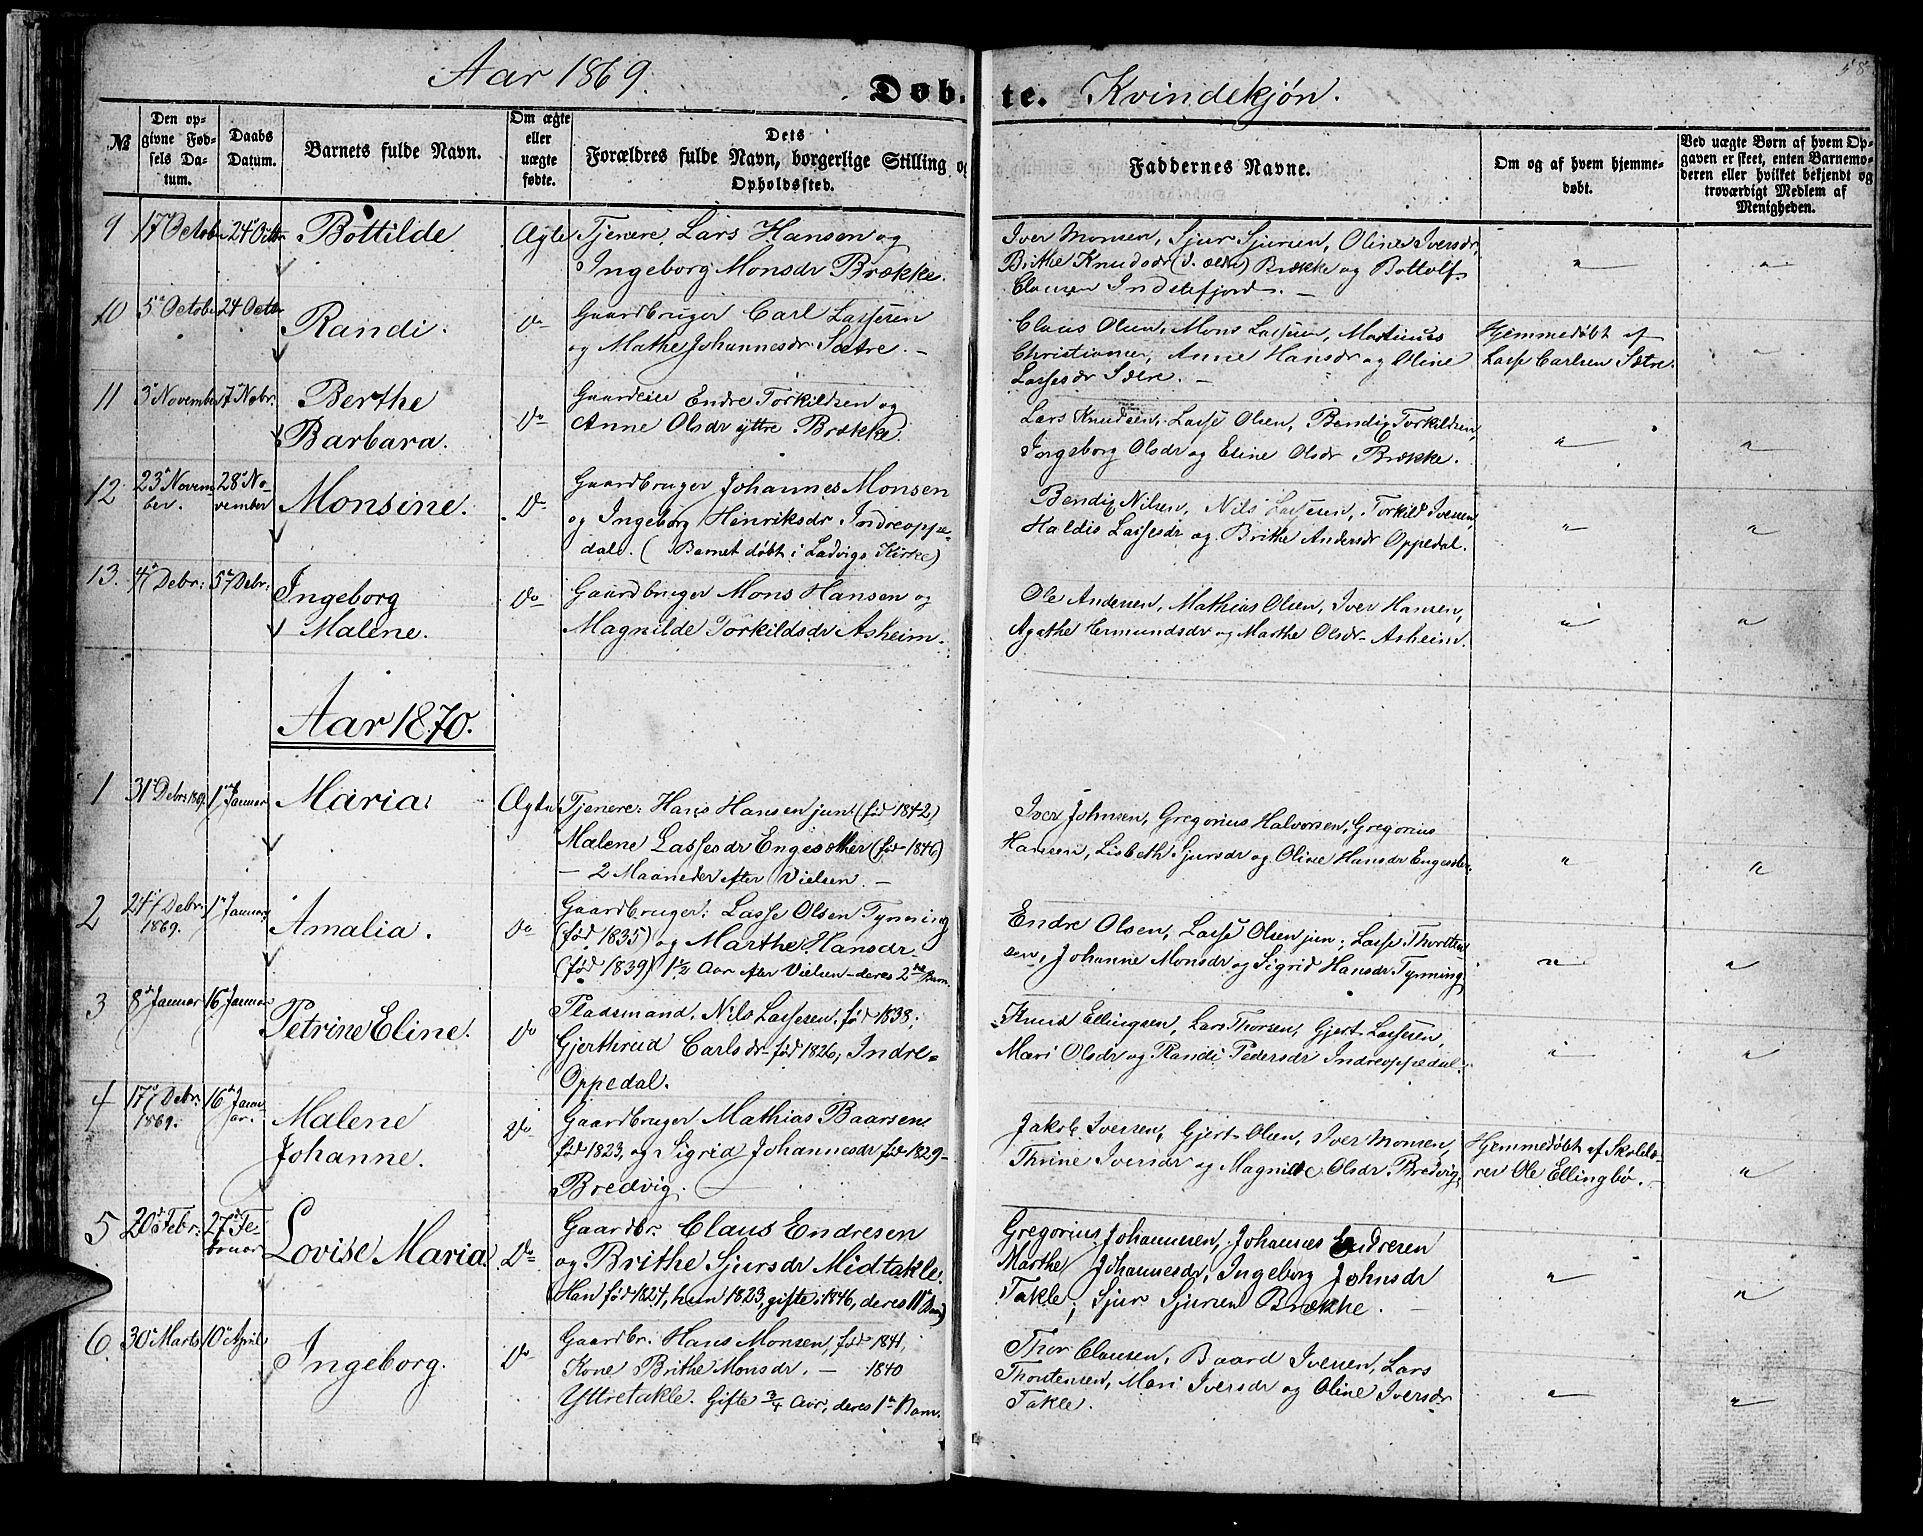 Aar 1869.
Døb-te. Kvindekjøn.
58
№
Den op-
givne Fød-
sels Da-
tum.
Daabs
Datum.
Barnets fulde Navn.
Om ægte
eller
uægte
fødte.
Dets
Forældres fulde Navn, borgerlige Stilling og
Opholdssted.
Faddernes Navne.
Om og af hvem hjemme-
døbt.
Ved uægte Børn af hvem Op-
gaven er skeet, enten Barnemo-
deren eller hvilket bekjendt og
troværdigt Medlem af
Menigheden.
9 17de Octobr 24de Octbr Bottilde Ægte Tjenere Lars Hansen og
Ingeborg Monsdr Brække.
Iver Monsen, Sjur Sjursen, Oline Iversdr,
Brithe Knudsdr Brække og Bottolf
Clausen Indrefjord. —
10 5te October 24 Octbr Randi. Do Gaardbruger Carl Lassesen
og Mathe Johannesdr Sætre. —
Claus Olsen, Mons Lassesen, Martinus
Christianser, Anne Hansdr og Oline
Lassesdr Sætre. —
Hjemmedøbt af
Lasse Carlsen Sætre.
11 3de November 7de Nobr. Berthe
Barbara. Do Gaardeier Endre Torkildsen og
Anne Olsdr yttre Brække.
Lars Knudsen, Lasse Olsen, Bendix Torkildsen,
Ingeborg Olsdr og Eline Olsdr Brække.
12 23de Novem-
ber. 28de No-
vember Monsine. Do Gaardbruger Johannes Monsen
og Ingeborg Henriksdr Indreoppe-
dal. (Barnet døbt i Ladvigs Kirke)
Bendix Nilsen, Nils Lassesen, Torkild Iversen,
Haldis Lassesdr og Brithe Andersdr Oppedal.
13. 4de Debr: 5te Debr: Ingeborg
Malene. Do Gaardbruger Mons Hansen og
Magnilde Torkildsdr Asheim.
Ole Andersen, Mathias Olsen, Iver Hansen,
Agathe Ermundsdr og Marthe Olsdr Asheim.
Aar 1870.
1 31te Debr: 1869. 1ste Januar Maria. Ægte Tjenere: Hans Hansen jun: (fød 1842)
Malene Lassesdr Engesæther (fød 1846)
— 2 Maaneder efter Vielsen. —
Iver Johnsen, Gregorius Halvorsen, Gregorius
Hansen, Lisbeth Sjursdr og Oline Hansdr Engesæter
2 24de Debr:
1869. 1ste Januar Amalia. Do Gaardbruger: Lasse Olsen Tynning
(fød 1835) og Marthe Hansdr
(fød 1839) 1½ Aar efter Vielsen – deres 2det Barn.
Endre Olsen, Lasse Olsen jun; Lasse Thorsten-
sen, Johanne Monsdr og Sigrid Hansdr Tynning
3 8de Januar 16de Januar Petrine Eline. Do Pladsmand. Nils Lassesen. fød 1838;
Gjerthrud Carlsdr – fød 1826, Indre-
Oppedal.
Knud Ellingsen, Lars Thorsen, Gjert Lassesen,
Mari Olsdr og Randi Pedersdr Indreoppedal.
4 17de Debr:
1869. 16de Janu-
ar. Malene
Johanne. Do Gaardbruger Mathias Baarsen
fød 1823, og Sigrid Johannesdr fød 1829 –
Bredvig.
Jakob Iversen, Gjert Olsen, Iver Monsen,
Thrine Iversdr og Magnilde Olsdr Bredvig,
Hjemmedøbt af Skolelæ-
rer Ole Ellingbø. —
5 20de Febr: 27de Fe-
bruar Lovise Maria. Do Gaardbr. Claus Endresen
og Brithe Sjursdr Midtakle.
(Han fød 1824, hun 1823, gifte: 1846, deres 11te Barn)
Gregorius Johannesen, Johannes Endresen
Marthe Johannesdr, Ingeborg Johnsdr
Takle; Sjur Sjursen Brække. —
6. 30te Marts 10de April Ingeborg. Do Gaardbr. Hans Monsen, fød 1841,
Kone Brithe Monsdr. — 1840
Yttretakle. Gifte ¾ Aar, deres 1ste Barn.
Thor Clausen, Baard Iversen, Lars
Thorstensen, Mari Iversdr og Oline Iversdr
Takle.